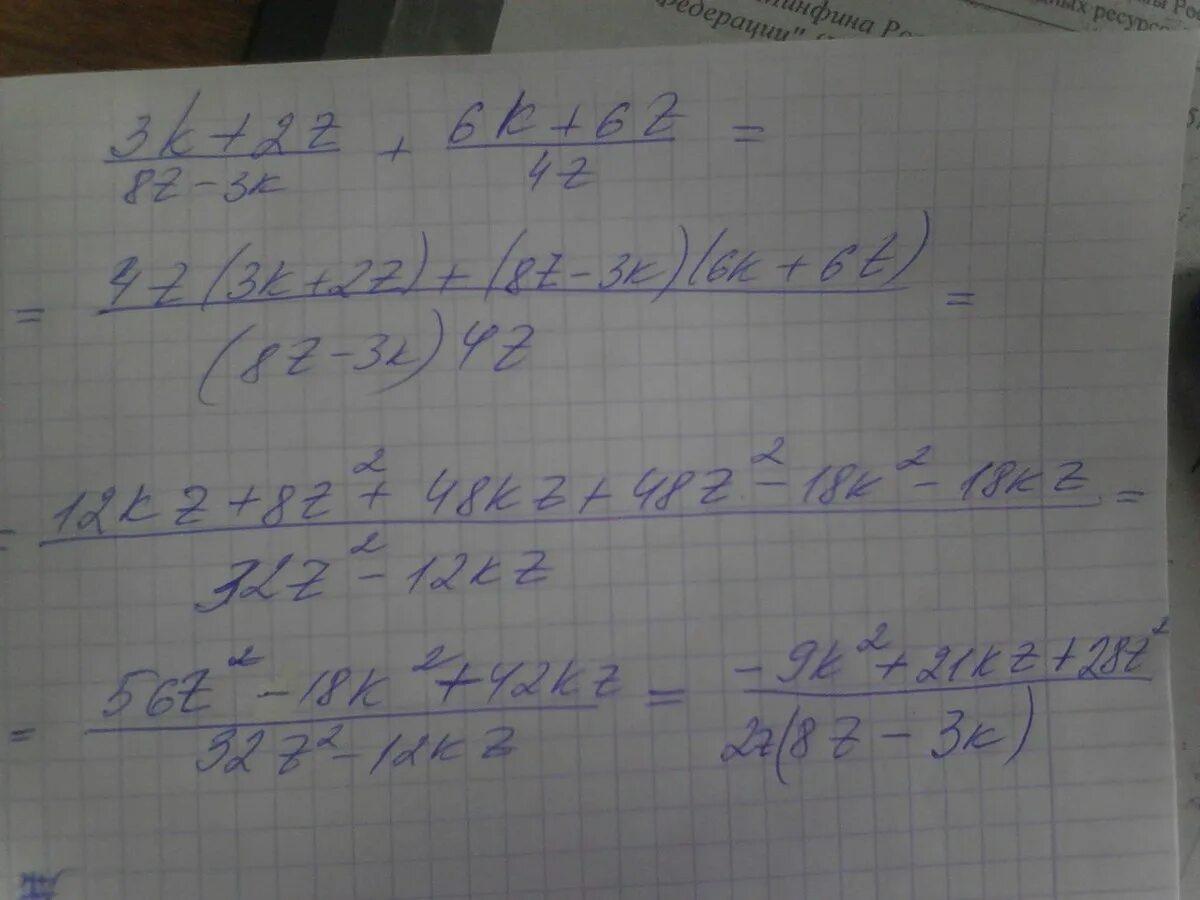 минфина Ро
Федерации"
ных ресурсо
3k+2z/8z-3k + 6k+6z/4z =
= 4z(3k+2z)+(8z-3k)(6k+6z)/(8z-3k)4z =
= 12kz+8z²+48kz+48z²-18k²-18kz/32z²-12kz =
= 56z²-18k²+42kz/32z²-12kz = -9k²+21kz+28z²/2z(8z-3k)